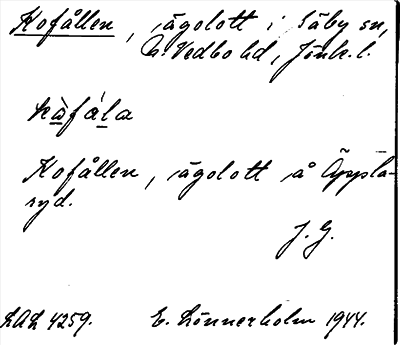 Kofållen, ägolott i Säby sn,
N. Vedbo hd, Jönk. l.
kàfála
Kofållen, ägolott å Äppla-
ryd.
J. G.
LAL 4259. E. Lönnerholm 1944.